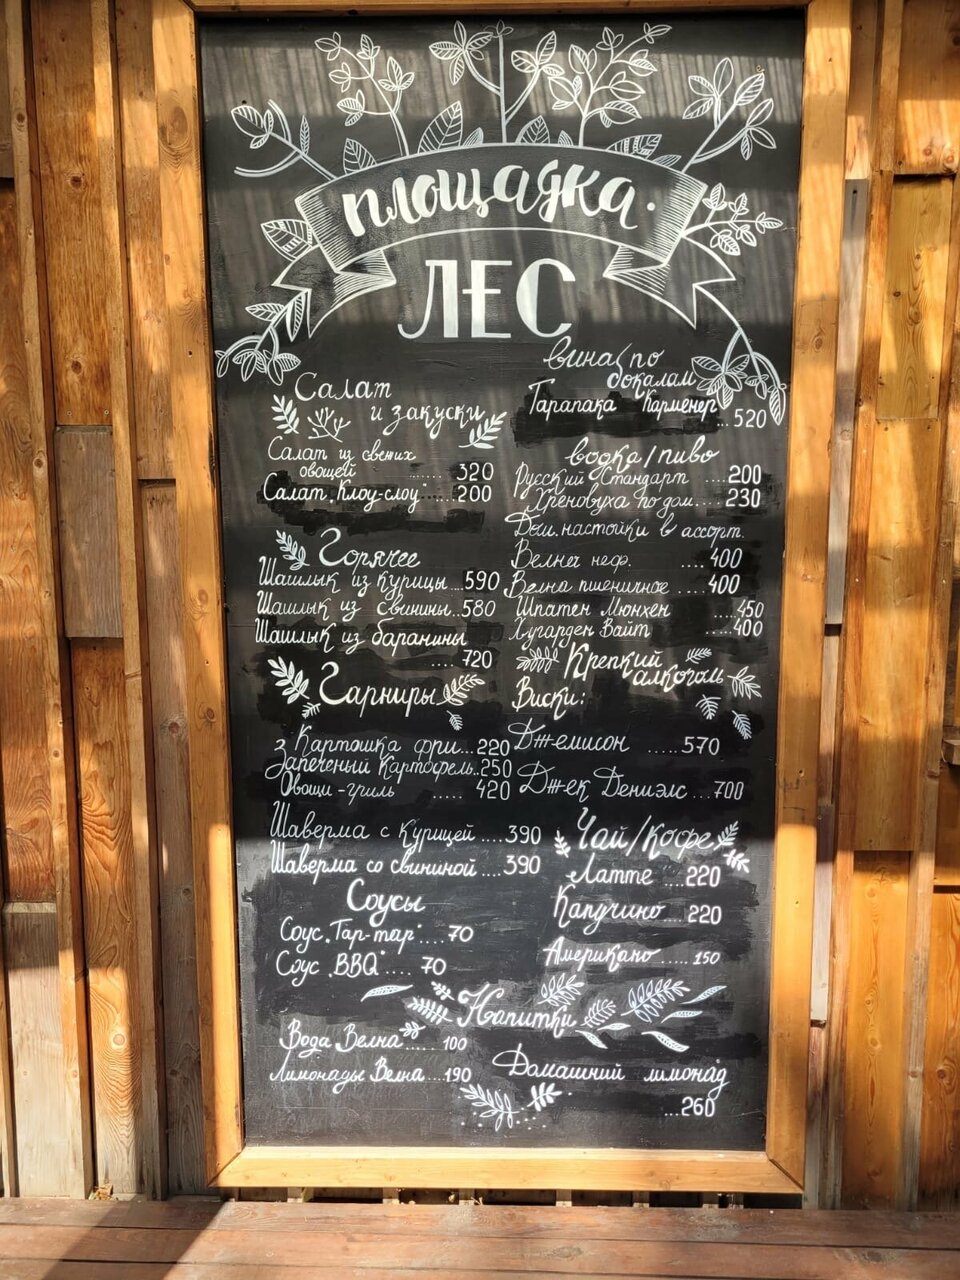 площадка.
ЛЕС
Салат
и закуски
Салат из свежих
овощей ...... 320
Салат "Клоу-слоу" ..... 200
Горячее
Шашлык из курицы ... 590
Шашлык из свинины .. 580
Шашлык из баранины
.... 720
Гарниры
Картошка фри ... 220
Запеченый картофель .. 250
Овощи-гриль ..... 420
Шаверма с курицей .... 390
Шаверма со свининой .... 390
Соусы
Соус "Тар-тар" .... 70
Соус "BBQ" .... 70
вина/по
бокалам
Тарапака Карменер
... 520
водка/пиво
Русский Стандарт .... 200
Хреновуха по дом .... 230
Дом. настойки в ассорт.
Велна неф. .... 400
Велна пшеничное .... 400
Шпатен Мюнхен ... 450
Хугарден Вайт ..... 400
Крепкий
алкоголь
Виски:
Джемисон ...... 570
Джек Дениэлс ... 700
Чай/кофе
Латте .... 220
Капучино ... 220
Американо ..... 150
Напитки
Вода "Велна" ..... 100
Лимонады Велна .... 190
Домашний лимонад
... 260